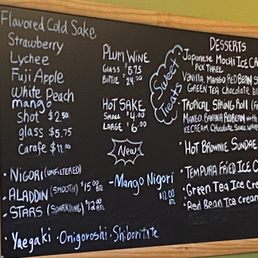 Flavored Cold Sake
Strawberry
Lychee
Fuji Apple
White Peach
mango
shot $2.50
glass $5.75
Carafe $11.00
• NIGORI (UNFILTERED)
• ALADDIN (SMOOTH) $15.00 BTL
• STARS (SPARKLING) $12.00 BTL
• Yaegaki • Onigoroshi •
PLUM WINE
GLASS $5.75
BOTTLE $24.00
HOT SAKE
SMALL $4.00
LARGE $6.00
New
-Mango Nigori
$12.00 BTL
Sweet Treats
DESSERTS
Japanese Mochi Ice
PICK THREE
VANILLA, MANGO, RED BEAN
GREEN TEA, CHOCOLATE
• TROPICAL SPRING ROLL
MANGO, BANANA, RED BEAN WITH
ICE CREAM, CHOCOLATE
• HOT BROWNIE SUNDAE
• TEMPURA FRIED ICE
• Green Tea Ice
• Red Bean Ice cream